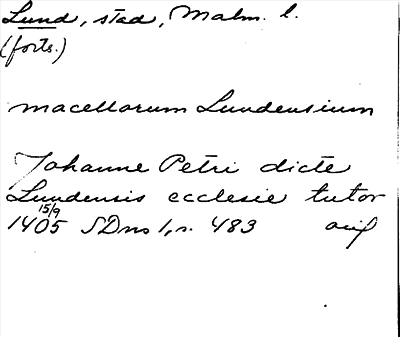 Lund, stad, Malm. l.
(forts.)
macellorum Lundensium
Johanne Petri dicte
Lundensis ecclesie tutor
15/9
1405 SDns 1, s. 483 orig